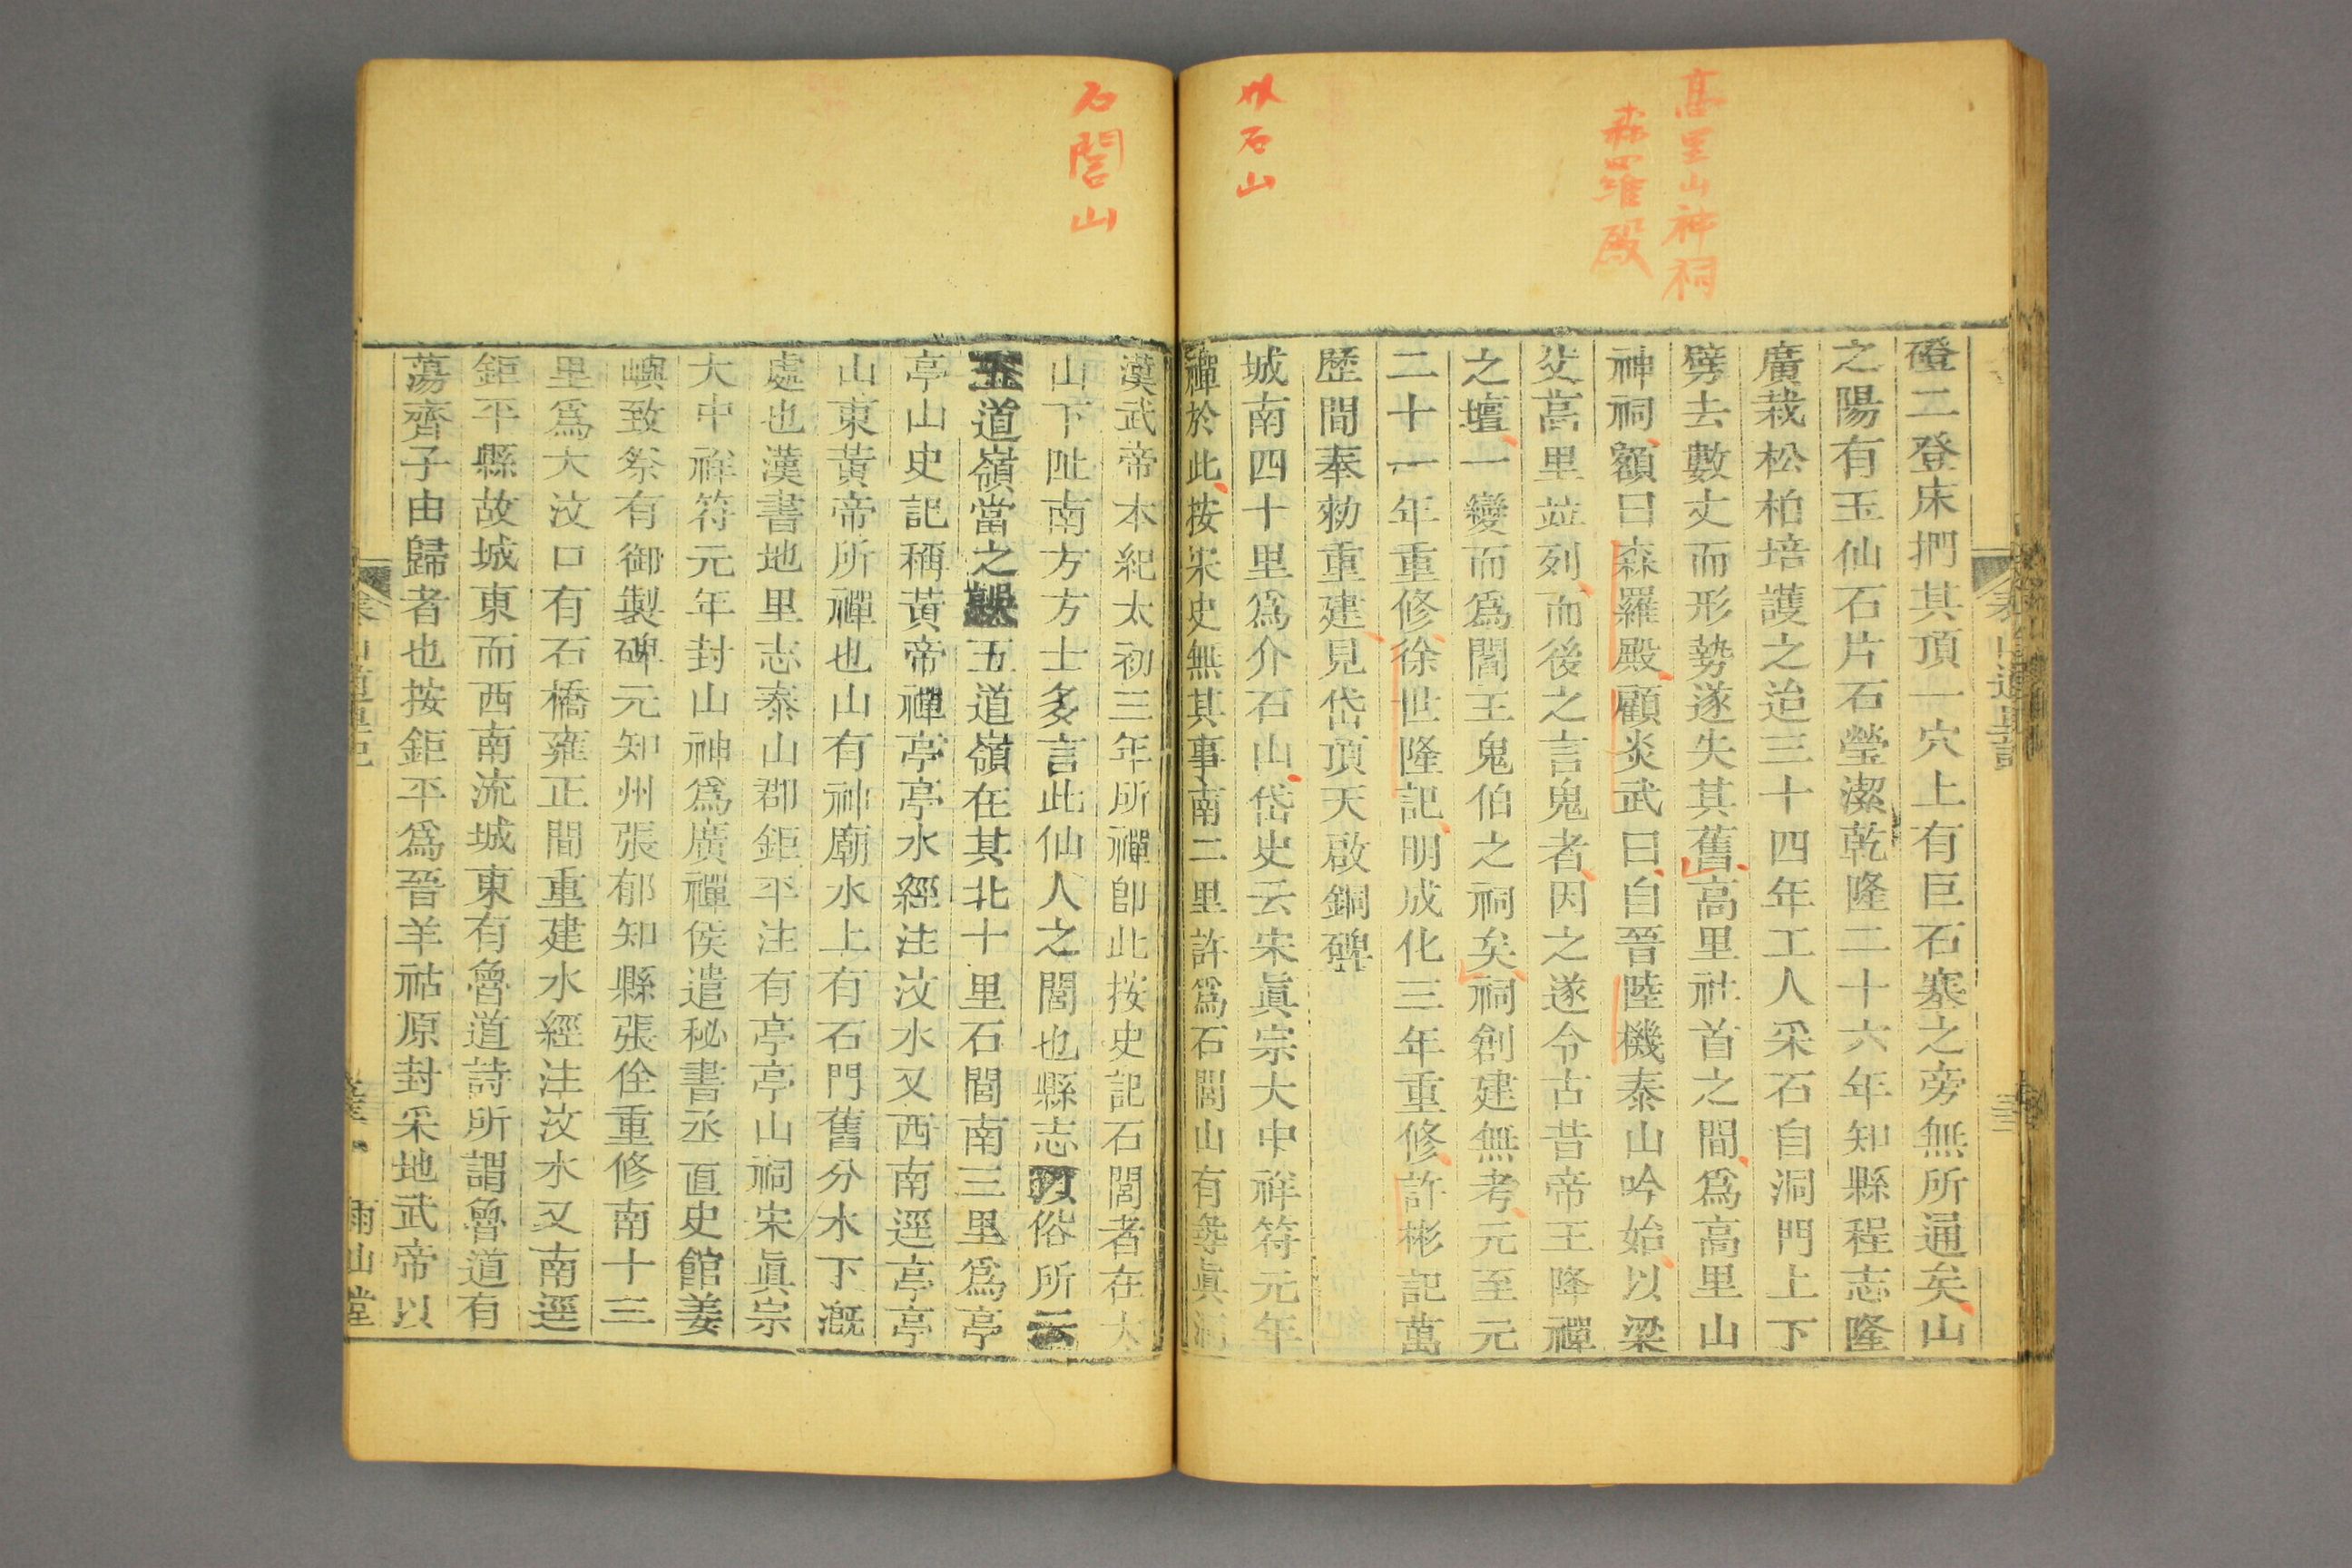 高里山神祠
森羅殿
介石山
磴二登床捫其頂一穴上有巨石塞之旁無所通矣山
之陽有玉仙石片石瑩潔乾隆二十六年知縣程志隆
廣栽松柏培護之迨三十四年工人采石自洞門上下
劈去數丈而形勢遂失其舊高里社首之間爲高里山
神祠額曰森羅殿顧炎武曰自晉陸機泰山吟始以梁
父蒿里並列而後之言鬼者因之遂令古昔帝王降禪
之壇一變而爲閻王鬼伯之祠矣祠創建無考元至元
二十一年重修徐世隆記明成化三年重修許彬記萬
歷間奉勑重建見岱頂天啟銅碑
城南四十里爲介石山岱史云宋眞宗大中祥符元年
禪於此按宋史無其事南二里許爲石閭山有尋眞洞
泰山道里記
石閭山
漢武帝本紀太初三年所禪卽此按史記石閭者在太
山下阯南方方士多言此仙人之閭也縣志 俗所云
五道嶺當之 五道嶺在其北十里石閭南三里爲亭
亭山史記稱黃帝禪亭亭水經注汶水又西南逕亭亭
山東黃帝所禪也山有神廟水上有石門舊分水下漑
處也漢書地里志泰山郡鉅平注有亭亭山祠宋眞宗
大中祥符元年封山神爲廣禪侯遣秘書丞直史館姜
嶼致祭有御製碑元知州張郁知縣張佺重修南十三
里爲大汶口有石橋雍正間重建水經注汶水又南逕
鉅平縣故城東而西南流城東有魯道詩所謂魯道有
蕩齊子由歸者也按鉅平爲晉羊祜原封采地武帝以
雨山堂